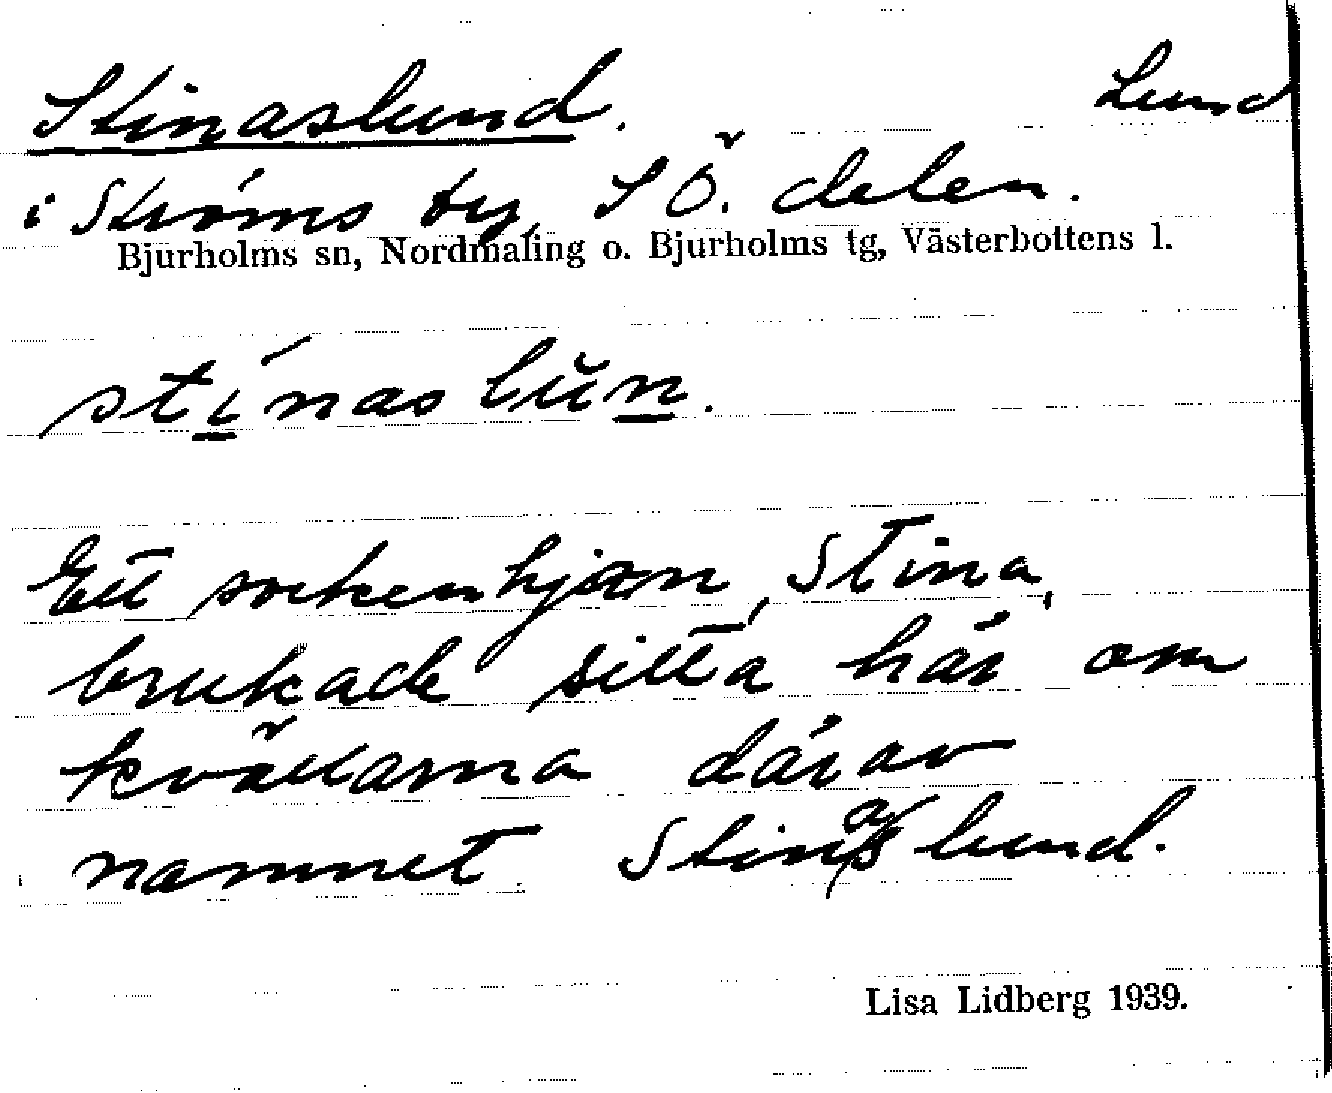 Stinaslund. Lund
i Ströms by, SÖ. delen.
Bjurholms sn, Nordmaling o. Bjurholms tg, Västerbottens l.
stínaslŭn.
Ett sockenhjon, Stina,
brukade sitta här om
kvällarna därav
namnet Stinaslund.
Lisa Lidberg 1939.